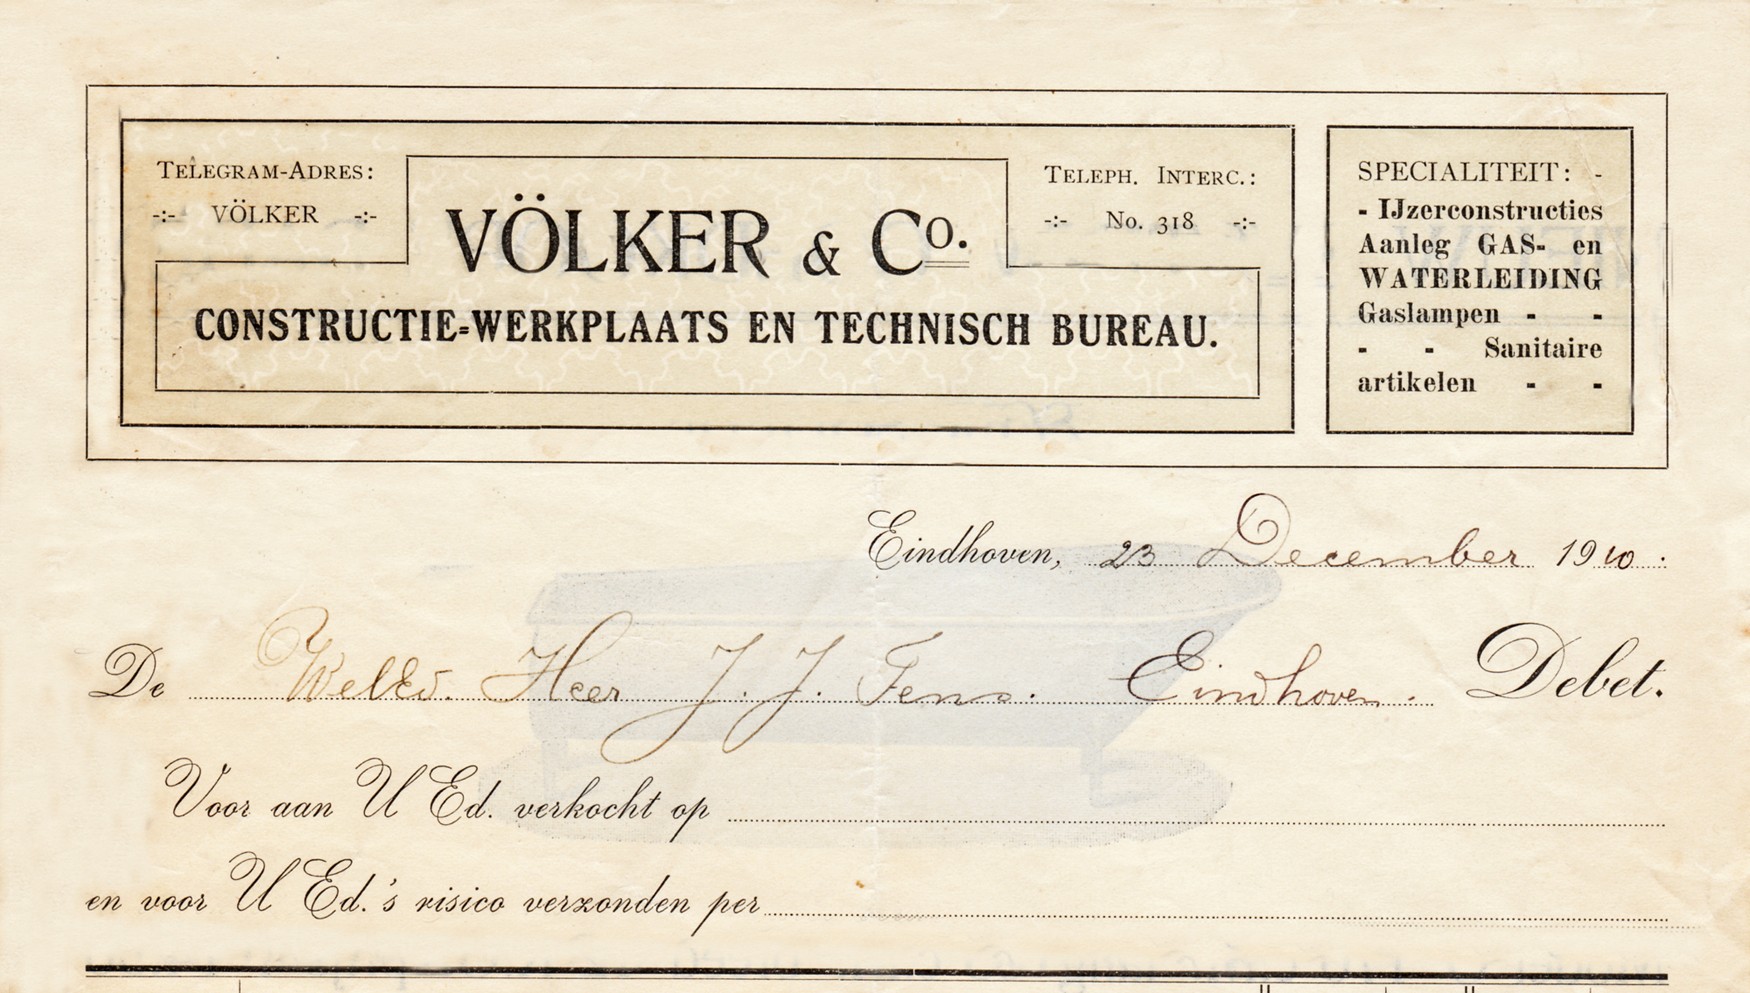 TELEGRAM-ADRES:
-:- VÖLKER -:-
VÖLKER & Co.
TELEPH. INTERC.:
-:- No. 318 -:-
CONSTRUCTIE=WERKPLAATS EN TECHNISCH BUREAU.
SPECIALITEIT: -
- IJzerconstructies
Aanleg GAS- en
WATERLEIDING
Gaslampen - -
- - Sanitaire
artikelen - -
Eindhoven, 23 December 1910.
De WelEd. Heer J. J. Fens. Eindhoven. Debet.
Voor aan U Ed. verkocht op
en voor U Ed.'s risico verzonden per